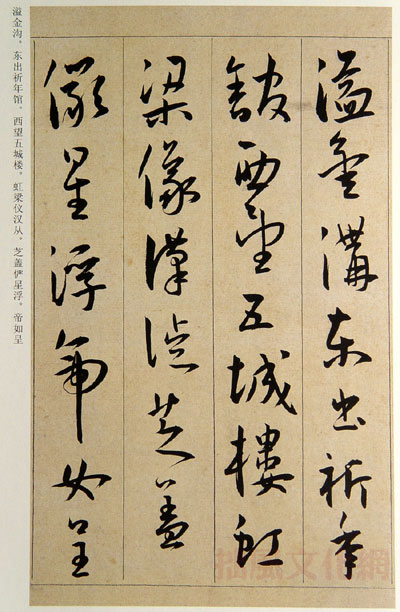 溢金溝東出祈年
舘西望五城樓虹
梁儀漢從芝蓋
儼星浮帝女呈
溢金沟。东出祈年馆。西望五城楼。虹梁仪汉从。芝盖俨星浮。帝如呈
拙風文化網